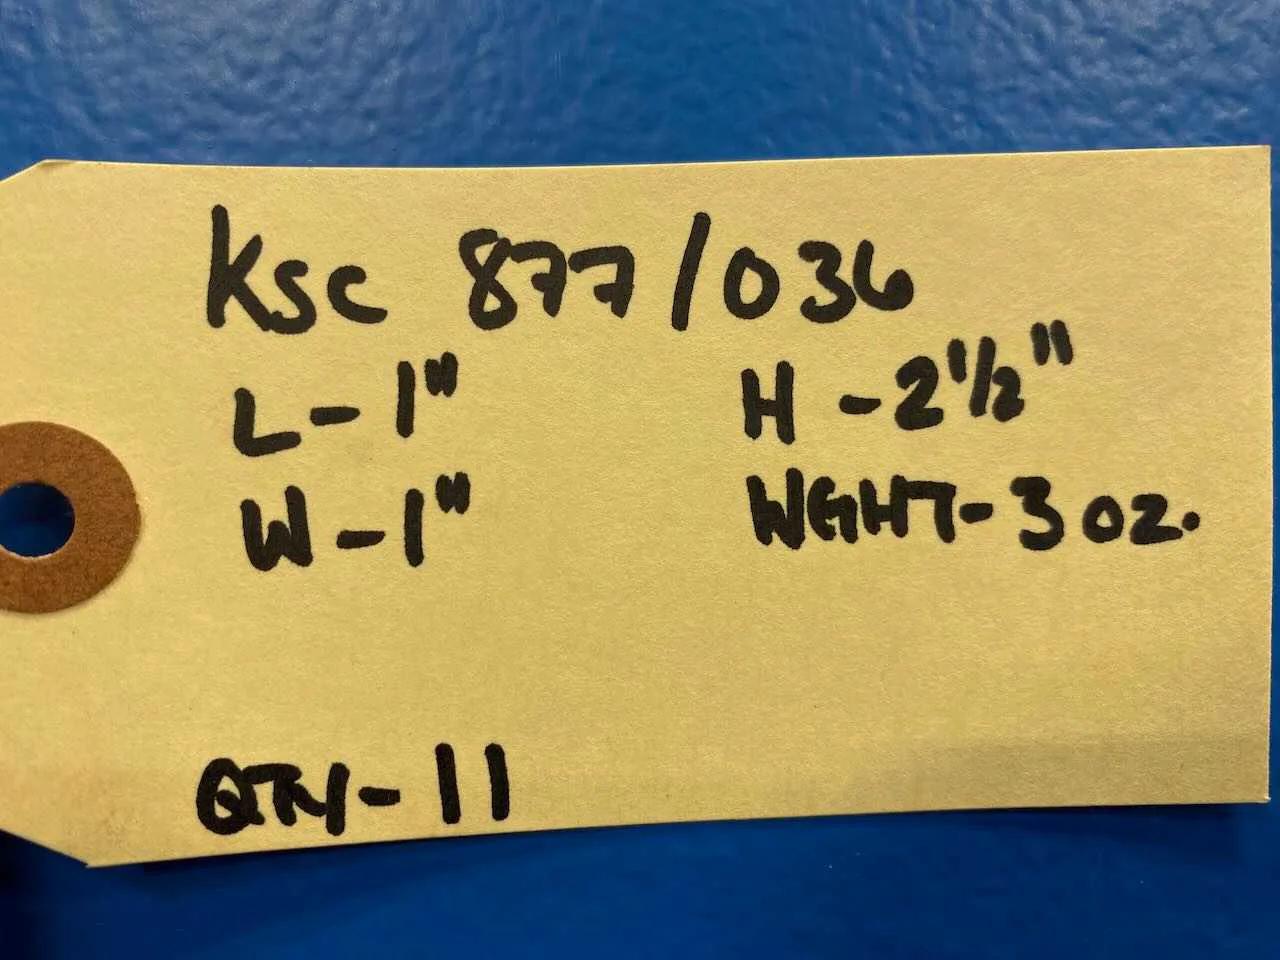 KSC 877/036
L-1" H-2 1/2"
W-1" WGHT-3 oz.
QTY-11